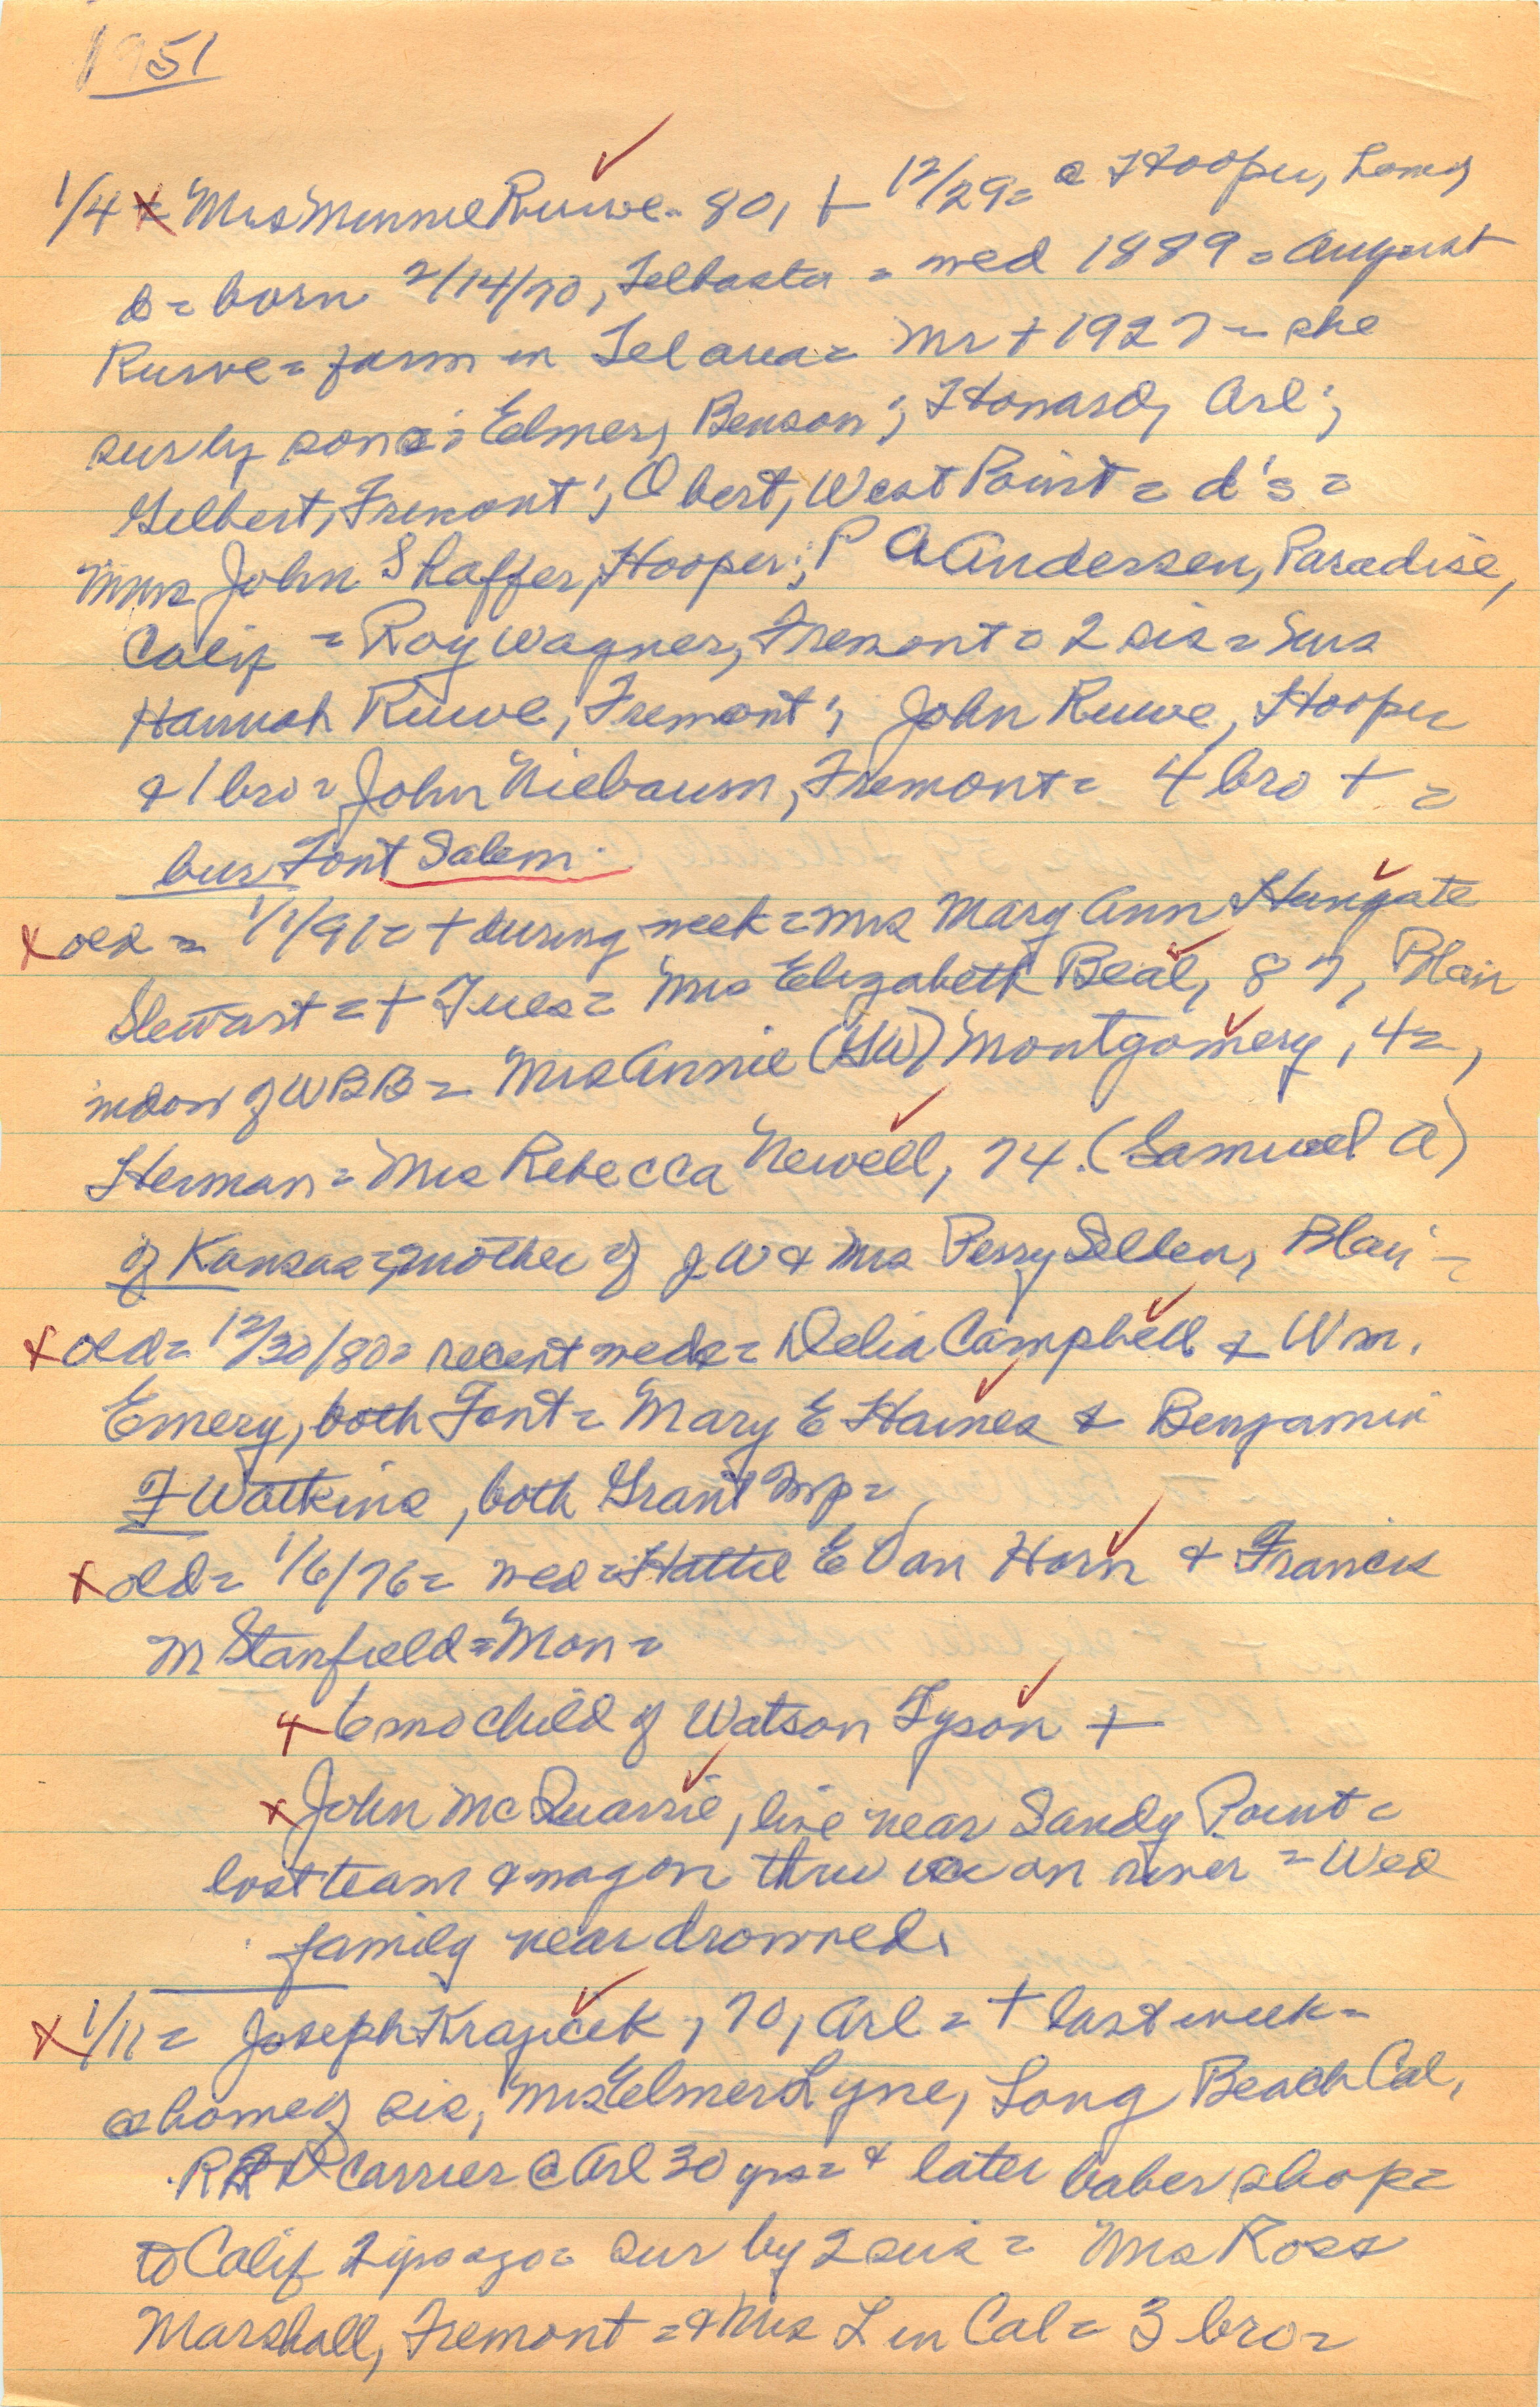 1951
1/4 x = Mrs Minnie Ruwe - 80, + 12/29 = @ Hooper, Long
= born 2/14/70, Telbasta = wed 1889 = August
Ruwe = farm in Tel area = Mr + 1927 = she
sur by sons: Elmer, Benson; Howard, Arl;
Gilbert, Fremont; Obert, West Point = d's =
Mmes John Shaffer, Hooper; P A Andersen, Paradise,
Calif = Roy Wagner, Fremont = 2 sis =
Hannah Ruwe, Fremont; John Ruwe, Hooper
& 1 bro = John Niebaum, Fremont = 4 bro + =
bur Font Salem.
x old = 1/1/91 = + during week = Mrs Mary Ann Hungate
Stewart = + Tues = Mrs Elizabeth Beal, 87, Blair
widow of W B B = Mrs Annie (GW) Montgomery, 42,
Herman = Mrs Rebecca Newell, 74. (Samuel A)
of Kansas = mother of J W & Mrs Perry Selden, Blair =
x old = 12/30/80 = recent weds = Delia Campbell & Wm.
Emery, both Font = Mary E Haines & Benjamin
F Watkins, both Grant twp =
x old = 1/6/76 = wed = Hattie E Van Horn & Francis
M Stanfield = Mon =
x 6 mo child of Watson Tyson +
x John McQuarrie, live near Sandy Point =
lost team & wagon thru ice on river = Wed
family near drowned.
x 1/11 = Joseph Krajicek, 70, Arl = + last week =
@ home of sis, Mrs Elmer Lyne, Long Beach Cal,
carrier @ Arl 30 yrs = & later baber shop =
to Calif 2 yrs ago = sur by 2 sis = Mrs Ross
Marshall, Fremont = & Mrs L in Cal = 3 bro =